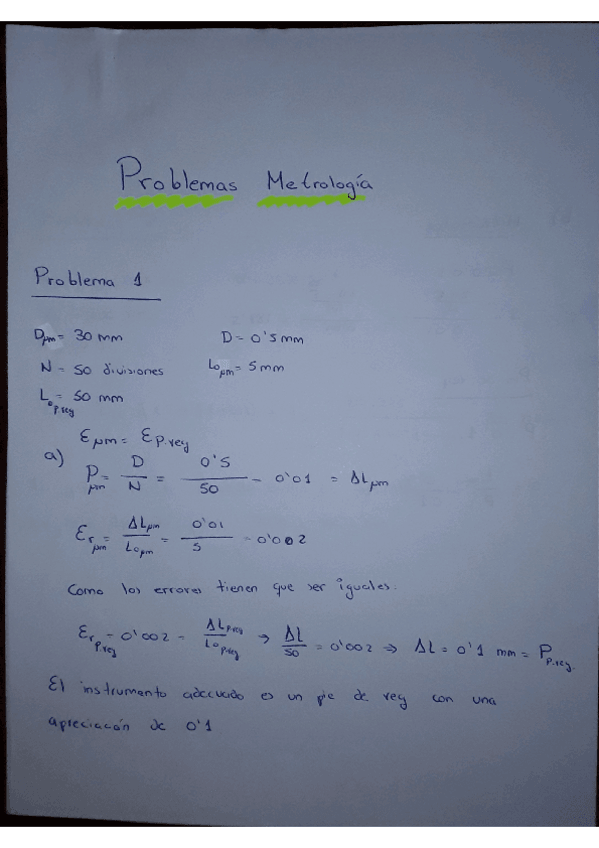 Problemas Metrología
Problema 1
Dμm = 30 mm D = 0'5 mm
N = 50 divisiones Loμm = 5 mm
Lo p.rey = 50 mm
Eμm = E p.rey
a) Pμm = D/N = 0'5/50 = 0'01 = ΔLμm
Er μm = ΔLμm/Loμm = 0'01/5 = 0'002
Como los errores tienen que ser iguales:
Er p.rey = 0'002 = ΔL p.rey/Lo p.rey → ΔL/50 = 0'002 ⇒ ΔL = 0'1 mm = P p.rey.
El instrumento adecuado es un pie de rey con una
apreciación de 0'1